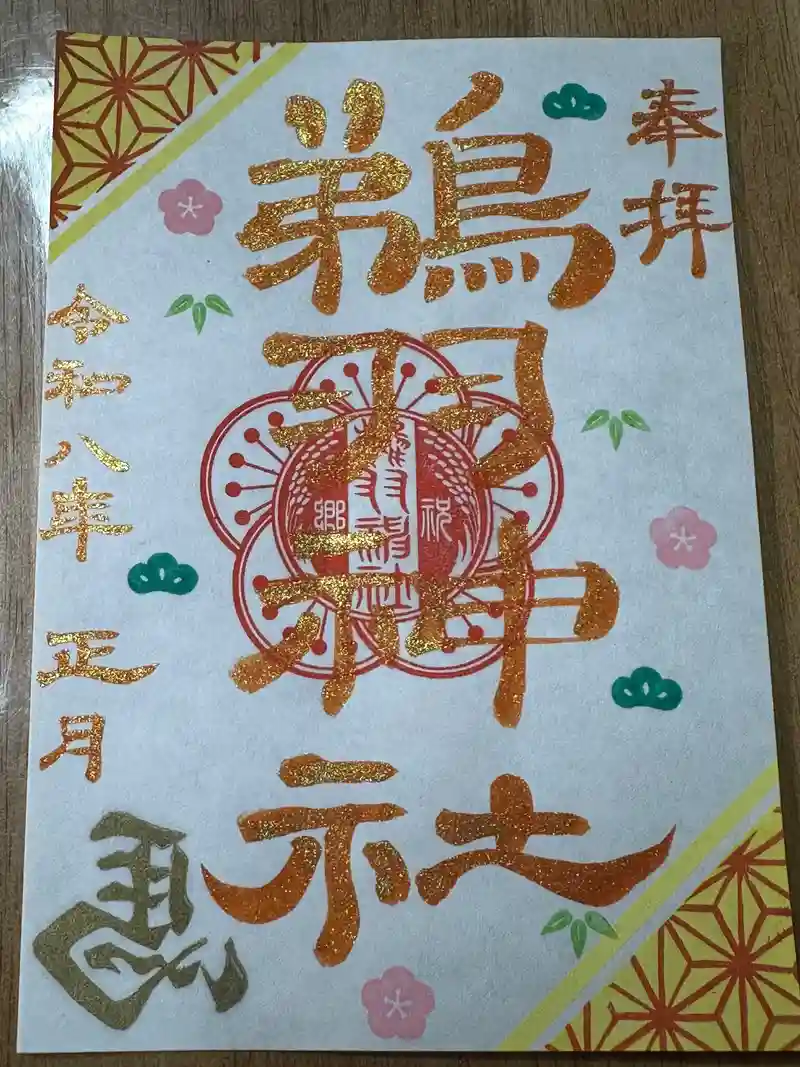 奉拝
鵜羽神社
鵜羽神社
祝
郷
令和八年 正月
馬